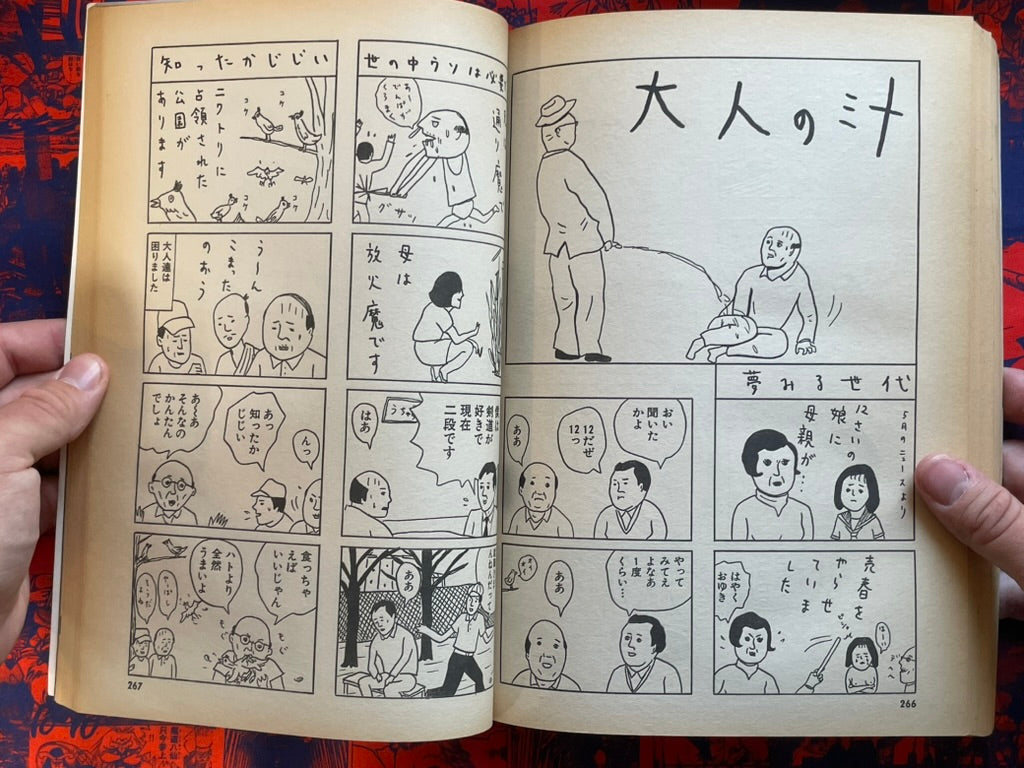 大人の汁
夢みる世代
5月のニュースより
12さいの
娘に
母親が…
売春を
やらせ
ていま
した
はやく
おゆき
ピシャ
はーい
おい
聞いた
かよ
12だぜ
12っ
ああ
やって
みてえ
よなあ
1度
くらい…
ああ
266
世の中ウソは必要
通り魔
グサッ
母は
放火魔です
僕は
剣道が
好きで
現在
二段です
はあ
ああ
知ったかじじい
ニワトリに
占領された
公園が
あります
コケ
コケ
コケ
コケ
大人達は
困りました
うーん
こまった
のおう
んっ
あっ
知ったか
じじい
あ〜あ
そんなの
かんたん
でしょ
食っちゃ
えば
いいじゃん
ハトより
全然
うまいよ
267